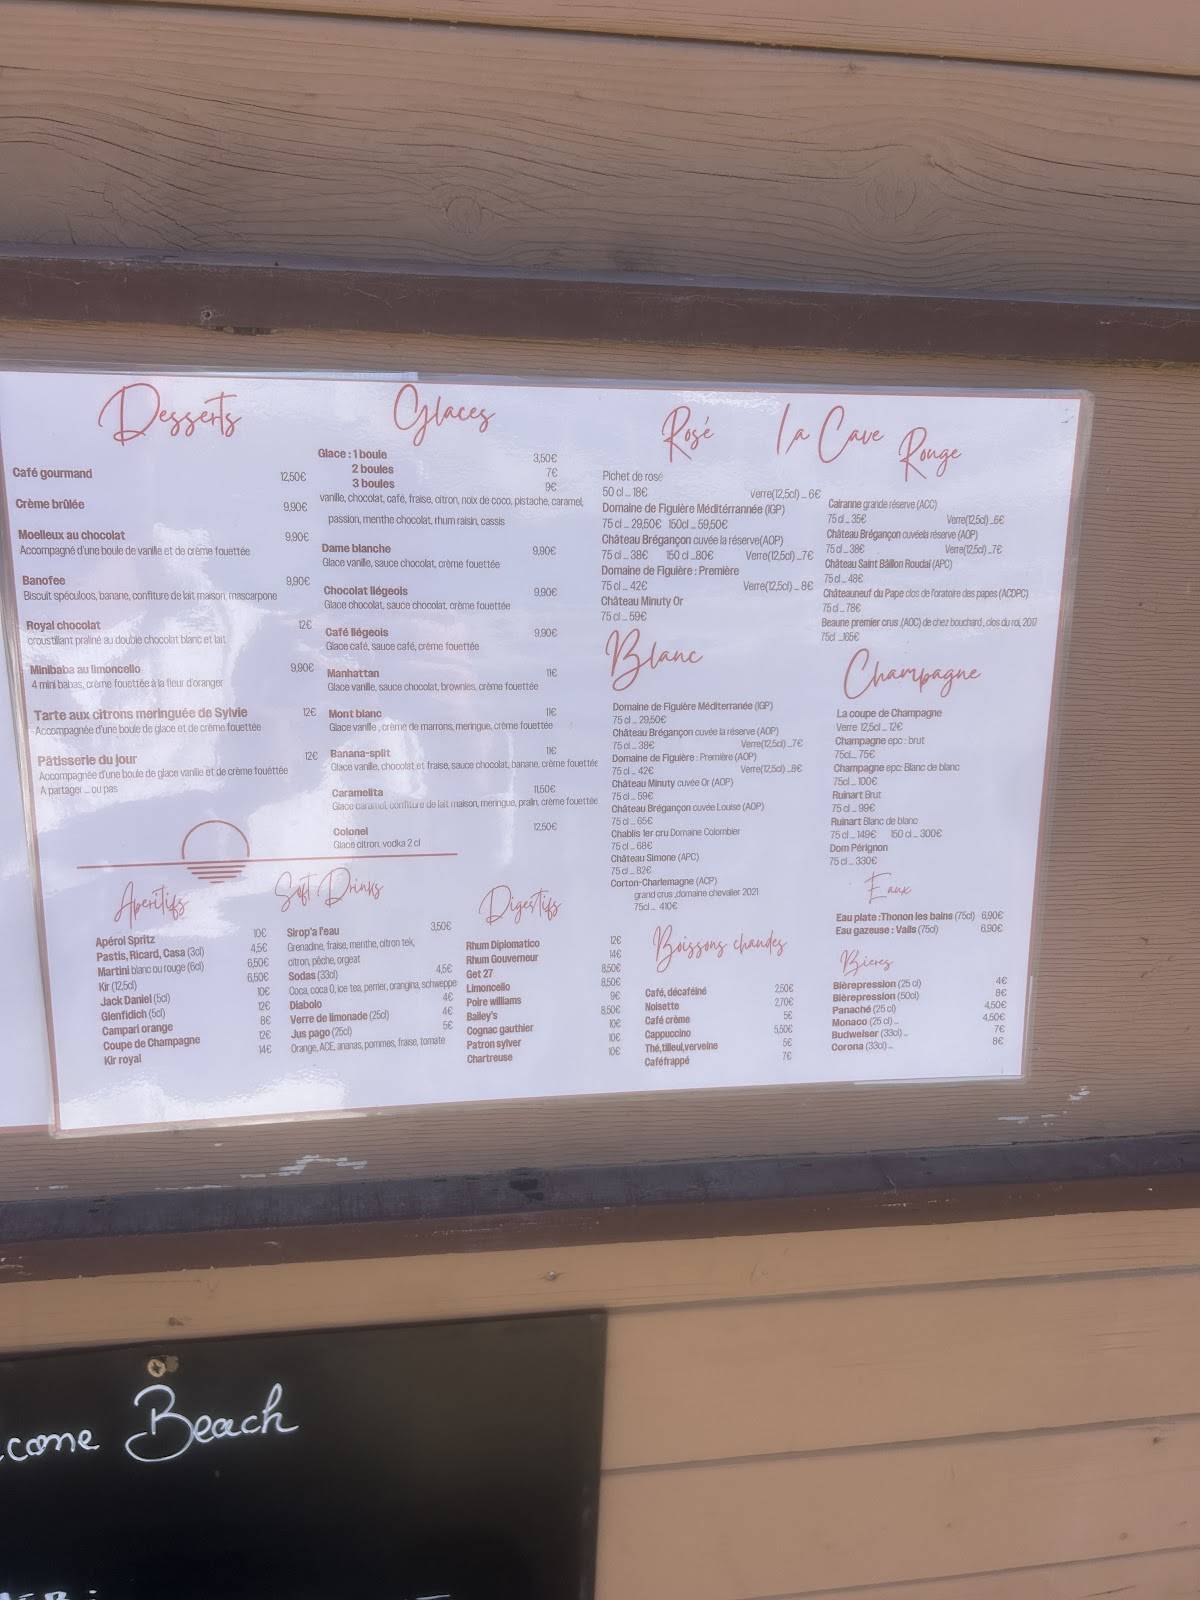 Desserts
Café gourmand 12,50€
Crème brûlée 9,90€
Moelleux au chocolat 9,90€
Accompagné d'une boule de vanille et de crème fouettée
Banofee 9,90€
Biscuit spéculoos, banane, confiture de lait maison, mascarpone
Royal chocolat 12€
croustillant praliné au double chocolat blanc et lait
Minibaba au limoncello 9,90€
4 mini babas, crème fouettée à la fleur d'oranger
Tarte aux citrons meringuée de Sylvie 12€
Accompagnée d'une boule de glace et de crème fouettée
Pâtisserie du jour 12€
Accompagnée d'une boule de glace vanille et de crème fouettée
A partager ... ou pas
Glaces
Glace : 1 boule 3,50€
2 boules 7€
3 boules 9€
vanille, chocolat, café, fraise, citron, noix de coco, pistache, caramel,
passion, menthe chocolat, rhum raisin, cassis
Dame blanche 9,90€
Glace vanille, sauce chocolat, crème fouettée
Chocolat liégeois 9,90€
Glace chocolat, sauce chocolat, crème fouettée
Café liégeois 9,90€
Glace café, sauce café, crème fouettée
Manhattan 11€
Glace vanille, sauce chocolat, brownies, crème fouettée
Mont blanc 11€
Glace vanille , crème de marrons, meringue, crème fouettée
Banana-split 11€
Glace vanille, chocolat et fraise, sauce chocolat, banane, crème fouettée
Caramelita 11,50€
Glace caramel, confiture de lait maison, meringue, pralin, crème fouettée
Colonel 12,50€
Glace citron, vodka 2 cl
La Cave
Rosé
Pichet de rosé
50 cl ... 18€ Verre(12,5cl) ... 6€
Domaine de Figuière Méditérrannée (IGP)
75 cl ... 29,50€ 150cl ... 59,50€
Château Brégançon cuvée la réserve(AOP)
75 cl ... 38€ 150 cl ...80€ Verre(12,5cl) ...7€
Domaine de Figuière : Première
75 cl ... 42€ Verre(12,5cl) ... 8€
Château Minuty Or
75 cl ... 59€
Rouge
Cairanne grande réserve (AOC)
75 cl ... 35€ Verre(12,5cl) ...6€
Château Brégançon cuvéela réserve (AOP)
75 cl ... 38€ Verre(12,5cl) ...7€
Château Saint Bâillon Roudaï (APC)
75 cl ... 48€
Châteauneuf du Pape clos de l'oratoire des papes (ACDPC)
75 cl ... 78€
Beaune premier crus ,(AOC) de chez bouchard , clos du roi, 2017
75cl ...165€
Blanc
Domaine de Figuière Méditerranée (IGP)
75 cl ... 29,50€
Château Brégançon cuvée la réserve (AOP)
75 cl ... 38€ Verre(12,5cl) ...7€
Domaine de Figuière : Première (AOP)
75 cl ... 42€ Verre(12,5cl) ...8€
Château Minuty cuvée Or (AOP)
75 cl ... 59€
Château Brégançon cuvée Louise (AOP)
75 cl ... 65€
Chablis 1er cru Domaine Colombier
75 cl ... 68€
Château Simone (APC)
75 cl ... 82€
Corton-Charlemagne (ACP)
grand crus ,domaine chevalier 2021
75cl ... 410€
Champagne
La coupe de Champagne
Verre 12,5cl ... 12€
Champagne epc : brut
75cl... 75€
Champagne epc: Blanc de blanc
75cl ... 100€
Ruinart Brut
75 cl ... 99€
Ruinart Blanc de blanc
75 cl ... 149€ 150 cl ... 300€
Dom Pérignon
75 cl ... 330€
Eaux
Eau plate :Thonon les bains (75cl) 6,90€
Eau gazeuse : Vals (75cl) 6,90€
Apéritifs
Apérol Spritz 10€
Pastis, Ricard, Casa (3cl) 4,5€
Martini blanc ou rouge (6cl) 6,50€
Kir (12,5cl) 6,50€
Jack Daniel (5cl) 10€
Glenfidich (5cl) 12€
Campari orange 8€
Coupe de Champagne 12€
Kir royal 14€
Soft Drinks
Sirop'a l'eau 3,50€
Grenadine, fraise, menthe, citron tek,
citron, pêche, orgeat
Sodas (33cl) 4,5€
Coca, coca 0, ice tea, perrier, orangina, schweppe
Diabolo 4€
Verre de limonade (25cl) 4€
Jus pago (25cl) 5€
Orange, ACE, ananas, pommes, fraise, tomate
Digestifs
Rhum Diplomatico 12€
Rhum Gouverneur 14€
Get 27 8,50€
Limoncello 8,50€
Poire williams 9€
Bailey's 8,50€
Cognac gauthier 10€
Patron sylver 10€
Chartreuse 10€
Boissons chaudes
Café, décaféiné 2,50€
Noisette 2,70€
Café crème 5€
Cappuccino 5,50€
Thé,tilleul,verveine 5€
Caféfrappé 7€
Bières
Bièrepression (25 cl) 4€
Bièrepression (50cl) 8€
Panaché (25 cl) 4,50€
Monaco (25 cl) ... 4,50€
Budweiser (33cl) ... 7€
Corona (33cl) ... 8€
come Beach